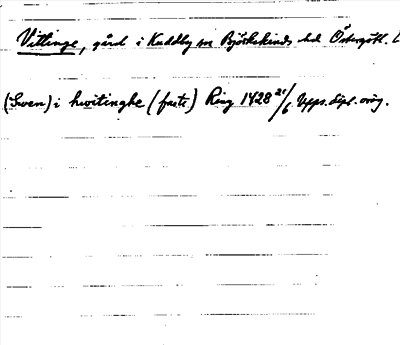 Vittinge, gård i Kuddby sn Björkekinds hd Östergötl. L
(Swen) i hwitinghe (fasta) Ring 1428 21/6 Upps. dipl. orig.